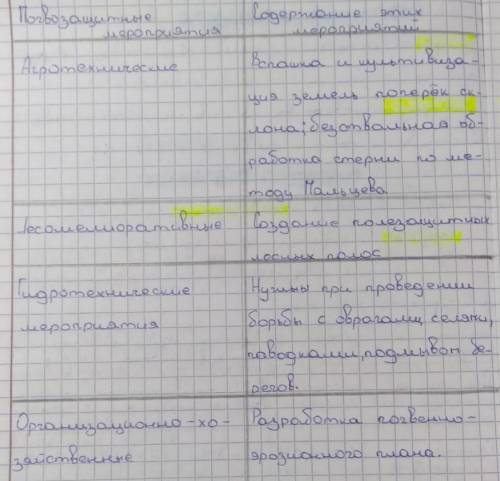 Почвозащитные Содержание этих
мероприятия мероприятий
Агротехнические Вспашка и культивиза-
ция земель поперёк ск-
лона; безотвальная об-
работка стерни по ме-
тоду Мальцева
Лесомелиоративные Создание полезащитных
лесных полос
Гидротехнические Нужны при проведении
мероприятия борьбы с оврагами, селями,
паводками, подмывом бе-
регов.
Организационно-хо- Разработка почвенно-
зяйственные эрозионного плана.